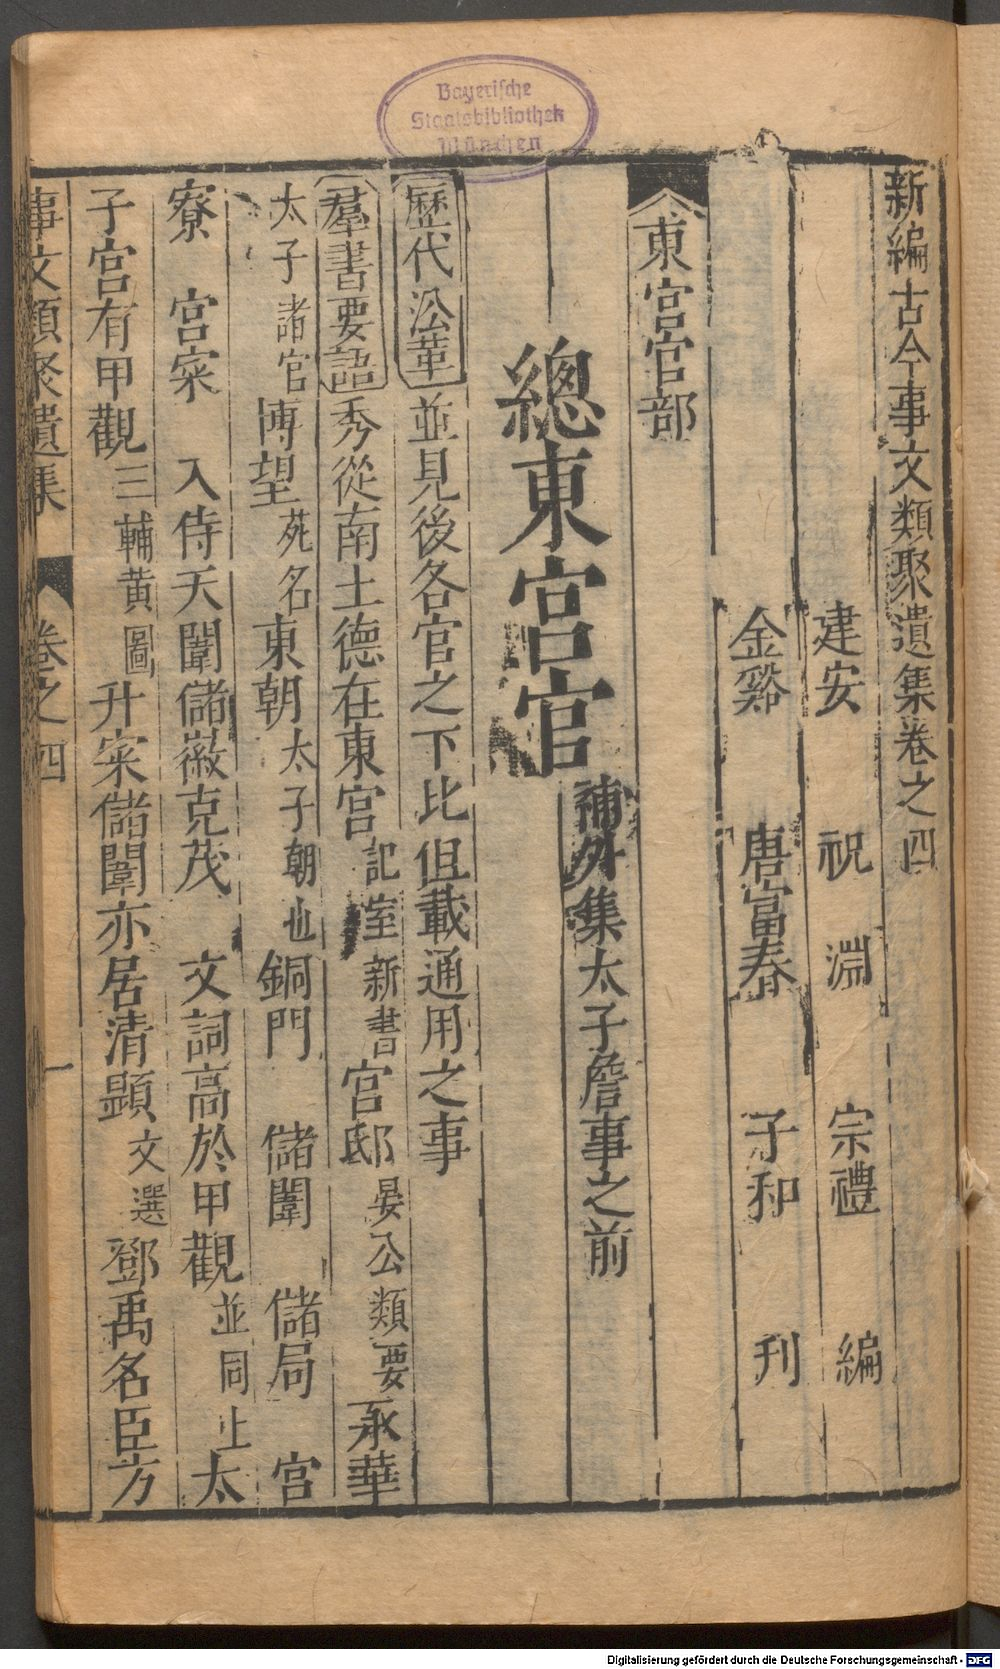 Bayerische
Staatsbibliothek
München
新編古今事文類聚遺集卷之四
建安 祝 淵 宗禮 編
金谿 唐富春 子和 刊
東宮官部
總東宮官 補外集太子詹事之前
歷代㳂革 並見後各官之下比但載通用之事
羣書要語 秀從南土德在東宮 記室新書 宮邸 晏公類要 承華
太子諸官 博望 苑名 東朝 太子朝也 銅門 儲闈 儲局 宮
寮 宮寀 入侍天闈儲徽克茂 文詞高於甲觀 並同上 太
子宮有甲觀 三輔黄圖 升寀儲闈亦居清顕 文選 鄧禹名臣方
事文類聚遺集 卷之四 一
Digitalisierung gefördert durch die Deutsche Forschungsgemeinschaft - DFG